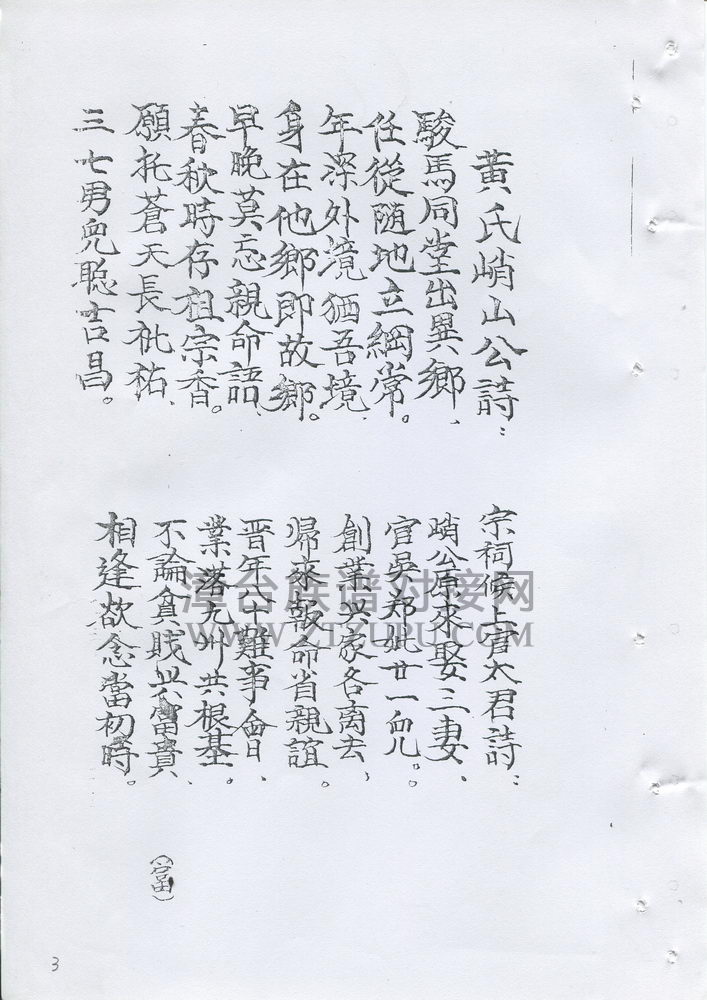 黃氏峭山公詩：
駿馬同堂出異鄉、
任從隨地立綱常。
年深外境猶吾境、
身在他鄉即故鄉。
早晚莫忘親命語、
春秋時存祖宗香。
願托蒼天長祉祐、
三七男兒總吉昌。
宗祠候上官太君詩：
峭公原來娶三妻、
官吳鄭妣廿一兒。
創業興家各離去、
歸來報命省親誼。
晋年八十難事會、
業落九州共根基。
不論貧賤與富貴、
相逢欲念當初時。
（富）
漳台族谱对接网
WWW.ZTZUPU.COM
3